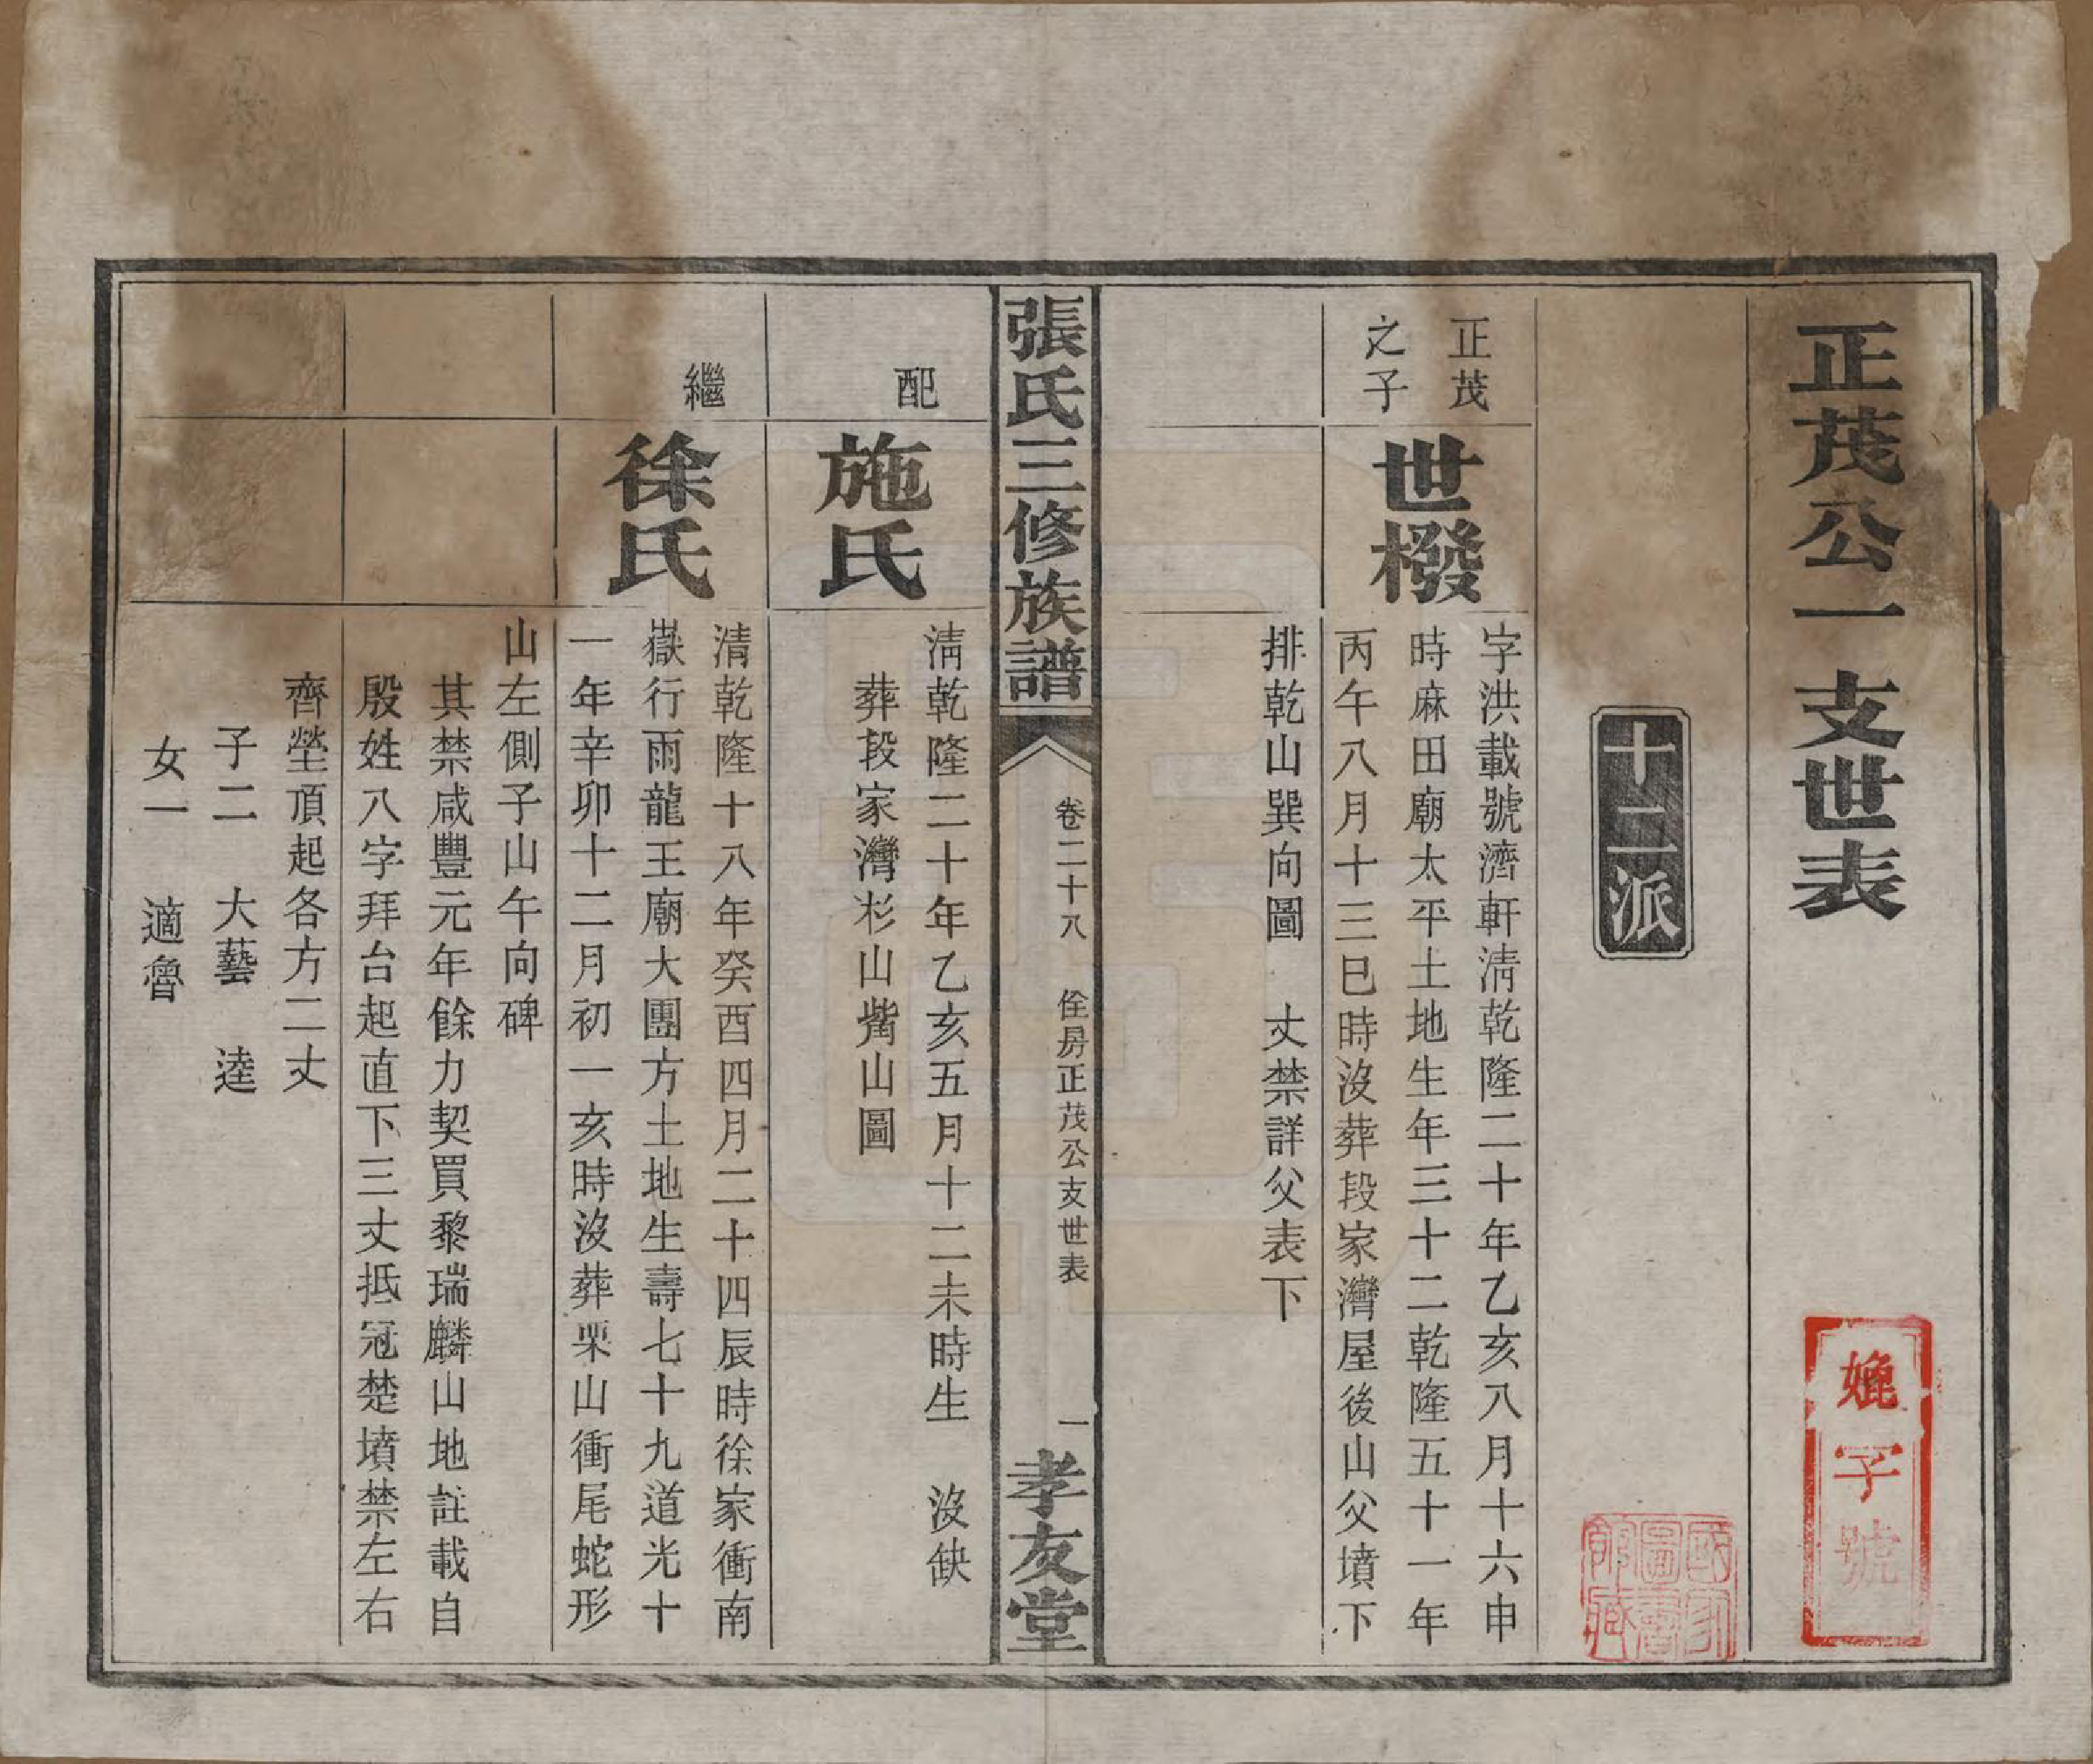 正茂公一支世表
十二派
正茂
之子
世橃
字洪載號濟軒淸乾隆二十年乙亥八月十六申
時麻田廟太平土地生年三十二乾隆五十一年
丙午八月十三巳時沒葬段家灣屋後山父墳下
排乾山巽向圖 丈禁詳父表下
張氏三修族譜
卷二十八 佺房正茂公支世表 一
孝友堂
配
施氏
淸乾隆二十年乙亥五月十二未時生 沒缺
葬段家灣杉山觜山圖
繼
徐氏
淸乾隆十八年癸酉四月二十四辰時徐家衝南
嶽行雨龍王廟大團方土地生壽七十九道光十
一年辛卯十二月初一亥時沒葬栗山衝尾蛇形
山左側子山午向碑
其禁咸豐元年餘力契買黎瑞麟山地註載自
殷姓八字拜台起直下三丈抵冠楚墳禁左右
齊塋頂起各方二丈
子二 大藝 逵
女一 適魯
子號
國家圖書館藏